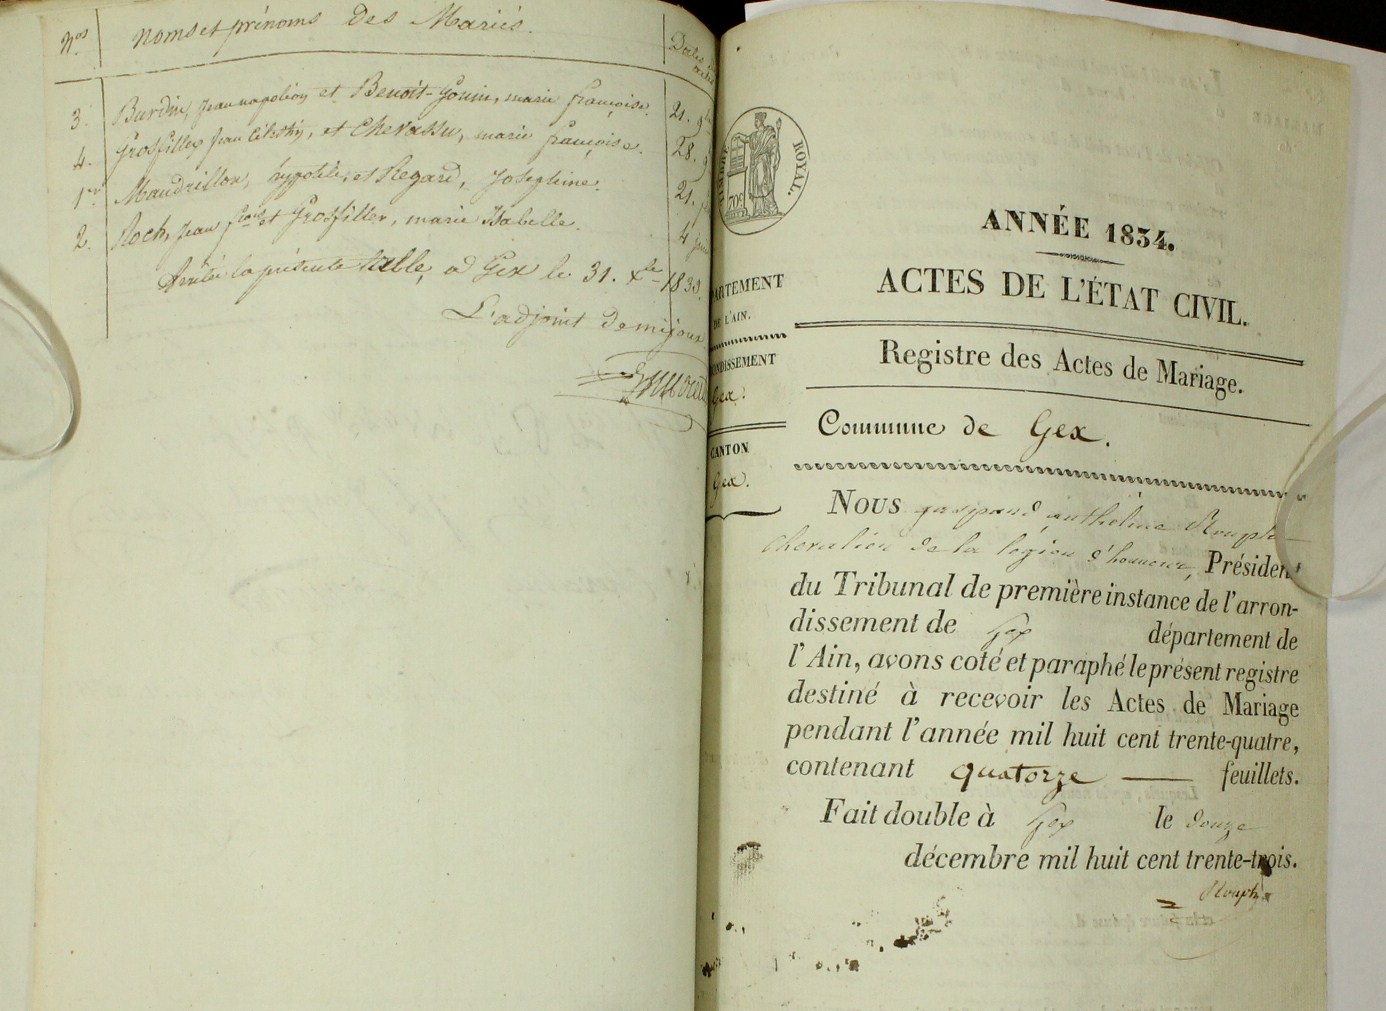 Nos Noms et prénoms Des Mariés. Dates
3. Burdin, Jean napoléon et Benoit-Gonin, marie françoise. 21.
4. Grosfilley Jean et Chevassu, marie françoise. 28.
1er Maudrillon, hypolite, et Regard, Joséphine. 21.
2. Roch, Jean fois et Grosfilley, marie Isabelle. 4
Arrêté la présente table, à Gex le 31. Xbre 1833.
L'adjoint De mijoux
TIMBRE ROYAL.
70c
ANNÉE 1834.
ACTES DE L'ÉTAT CIVIL.
PARTEMENT
DE L'AIN.
ONDISSEMENT
Gex.
CANTON
Gex.
Registre des Actes de Mariage.
Commune de Gex.
Nous gaspard anthelme
Chevalier de la légion d'honneur, Président
du Tribunal de première instance de l'arron-
dissement de Gex département de
l'Ain, avons coté et paraphé le présent registre
destiné à recevoir les Actes de Mariage
pendant l'année mil huit cent trente-quatre,
contenant quatorze — feuillets.
Fait double à Gex le douze
décembre mil huit cent trente-trois.